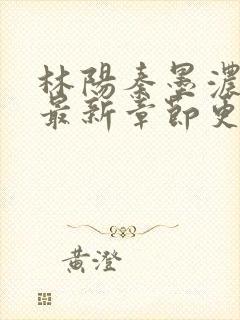 林陽秦墨濃
最新章節更
黃澄